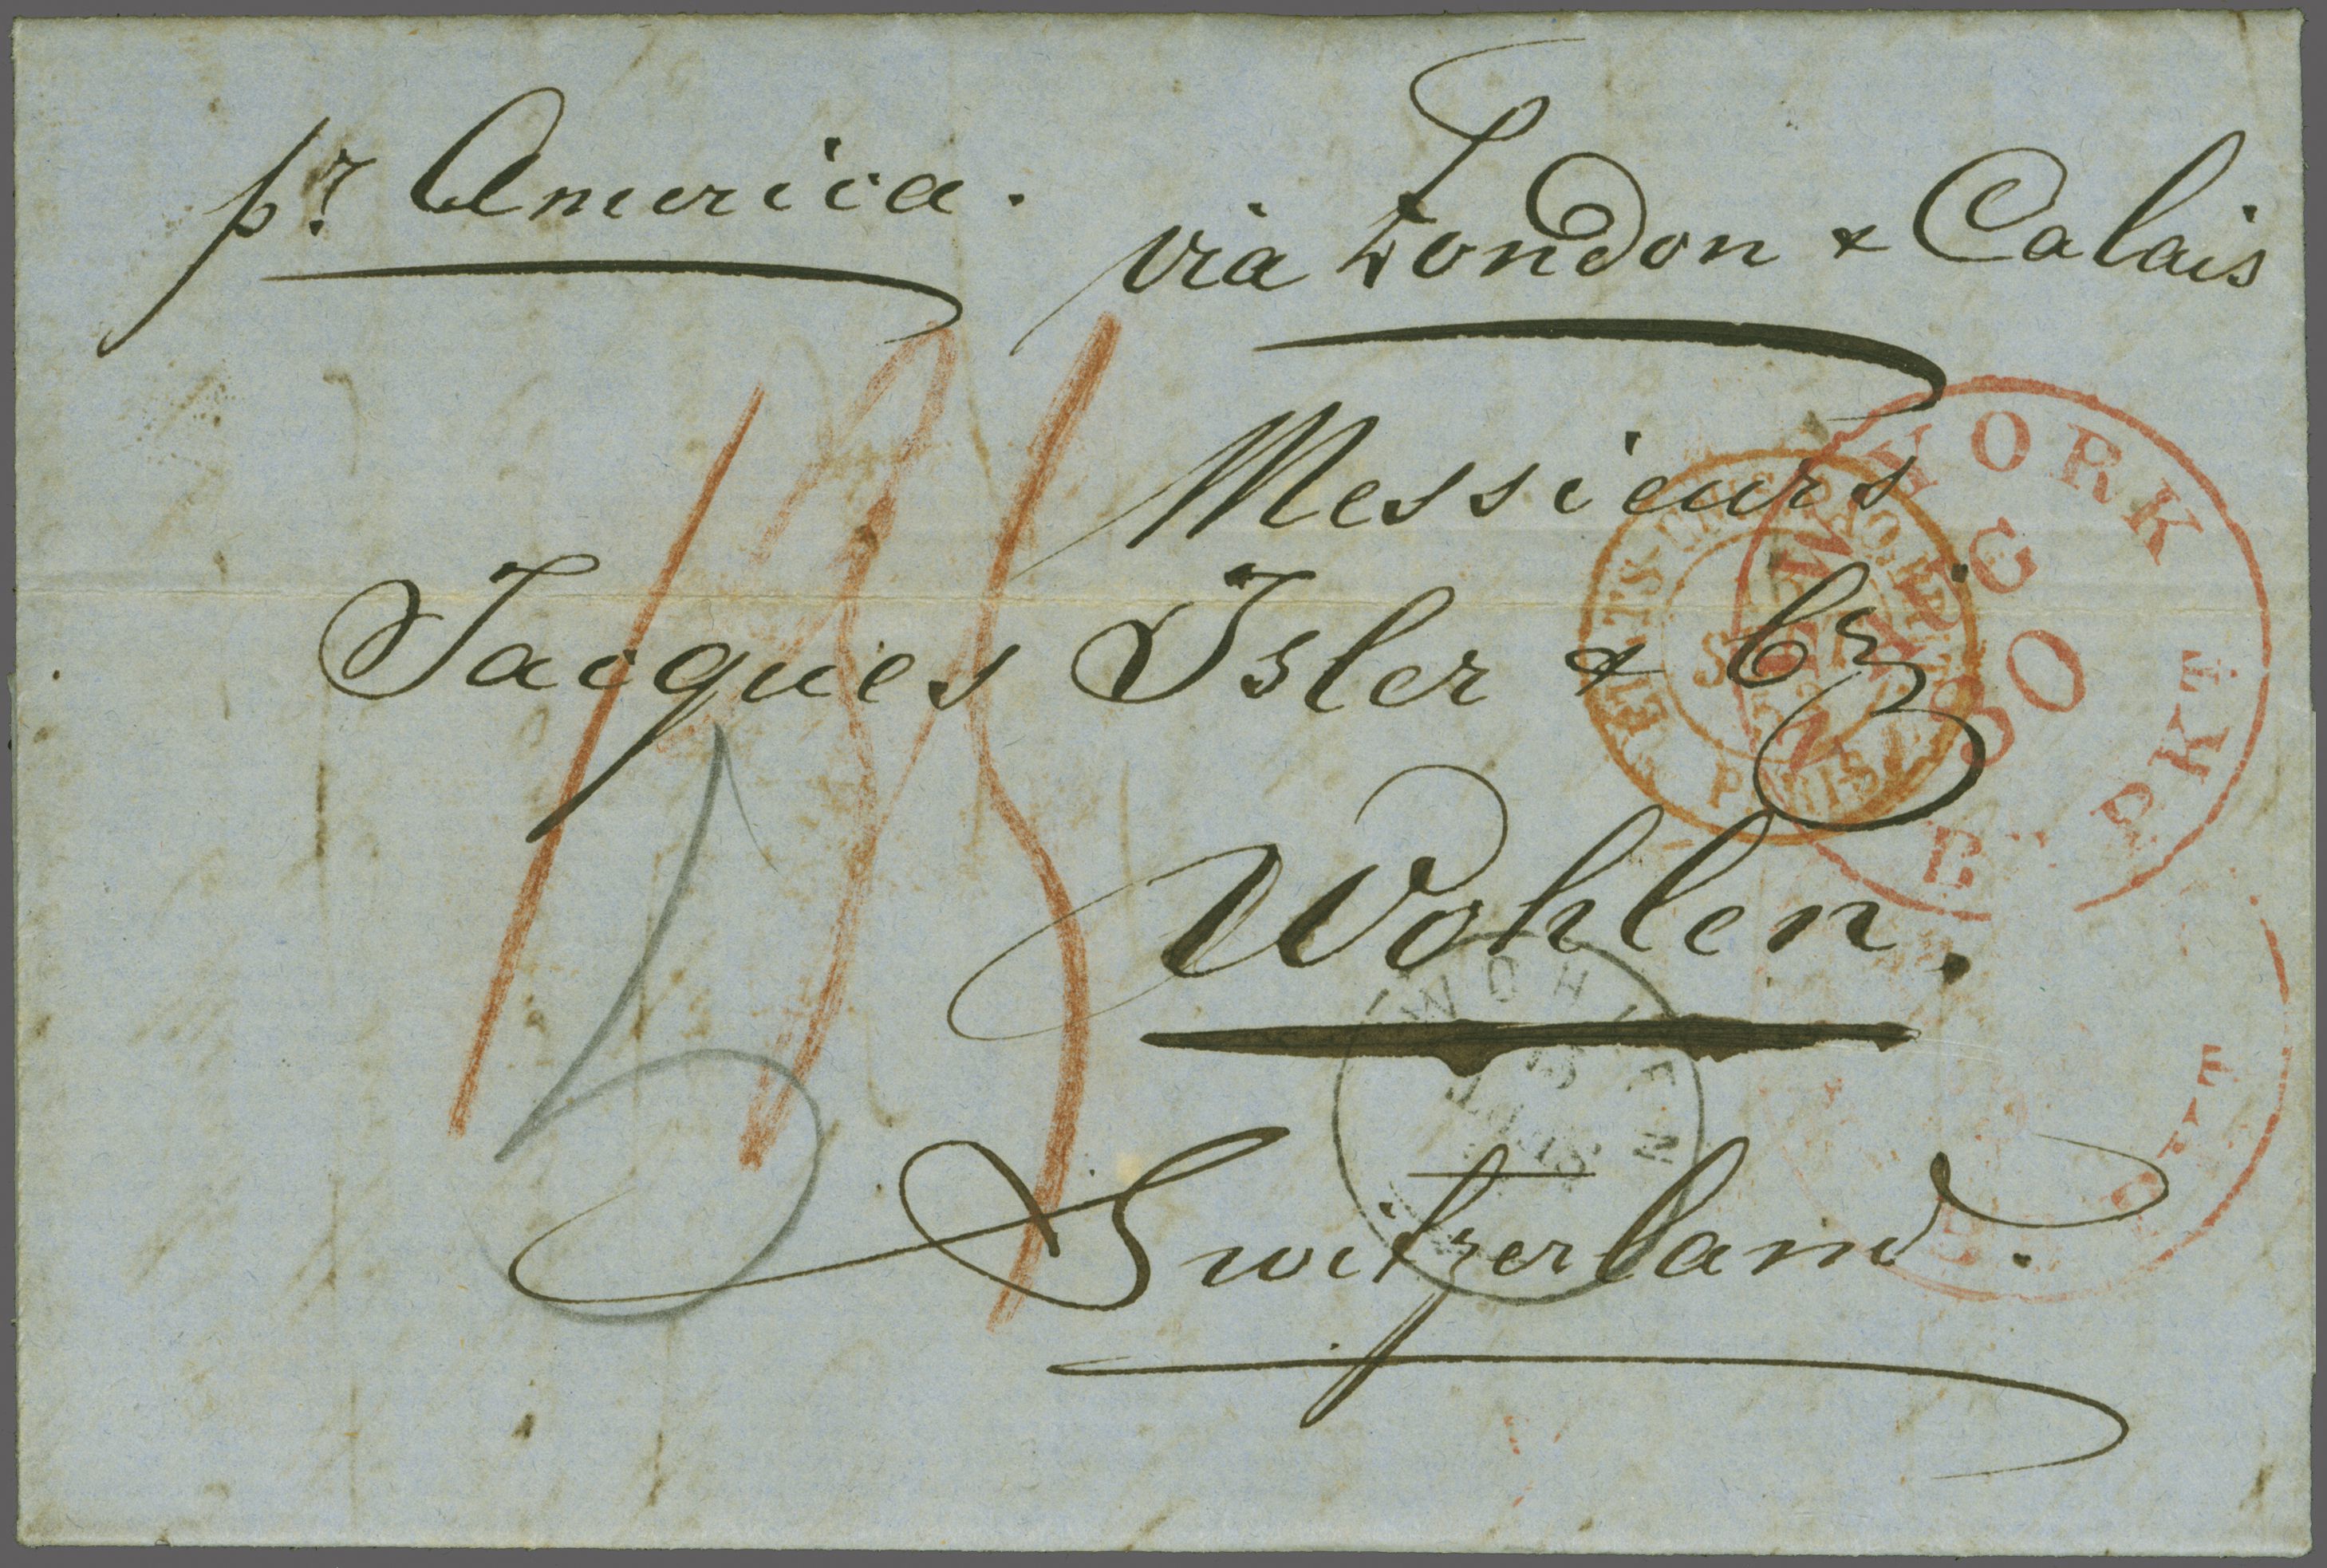 pr. America.
via London & Calais
Messieurs
Jacques Isler & Co
Wohlen.
Switzerland.
NEW YORK
AUG
30
BR PKT
ETATS-UNIS
PARIS
WOHLEN